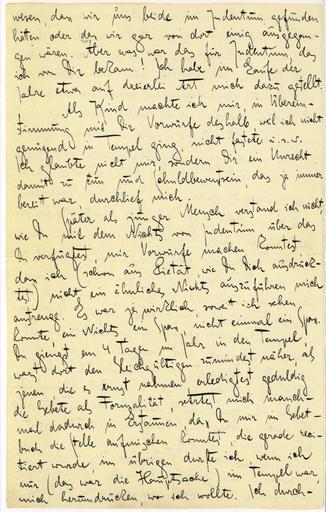 wesen, dass wir uns beide im Judentum gefunden
hätten oder dass wir gar von dort einig ausgegan-
gen wären. Aber was war das für Judentum, das
ich von Dir bekam! Ich habe im Laufe der
Jahre etwas auf dreierlei Art mich dazu gestellt.
Als Kind machte ich mir, in Überein-
stimmung mit Dir Vorwürfe deshalb weil ich nicht
genügend in Tempel ging, nicht fastete u. s. w.
Ich glaubte nicht mir, sondern Dir ein Unrecht
damit zu tun und Schuldbewusstsein, das ja immer
bereit war, durchlief mich
Später als junger Mensch verstand ich nicht,
wie Du mit dem Nichts von Judentum über das
Du verfügtest, mir Vorwürfe machen konntest
dass ich (schon aus Pietät, wie Du Dich ausdrück-
test) nicht ein ähnliches Nichts auszuführen mich
anstrenge. Es war ja wirklich, soweit ich sehen
konnte, ein Nichts, ein Spass, nicht einmal ein Spass.
Du giengst an 4 Tagen im Jahr in den Tempel,
warst dort den Gleichgültigen zumindest näher als
jenen die es ernst nahmen, erledigtest geduldig
die Gebete als Formalität, setztest mich manch-
mal dadurch in Erstaunen dass Du mir im Gebet-
buch die Stelle aufmischen konntest, die gerade rec-
itiert wurde, im übrigen durfte ich wenn ich
nur (das war die Hauptsache) im Tempel war,
mich herumdrücken, wo ich wollte. Ich durch-